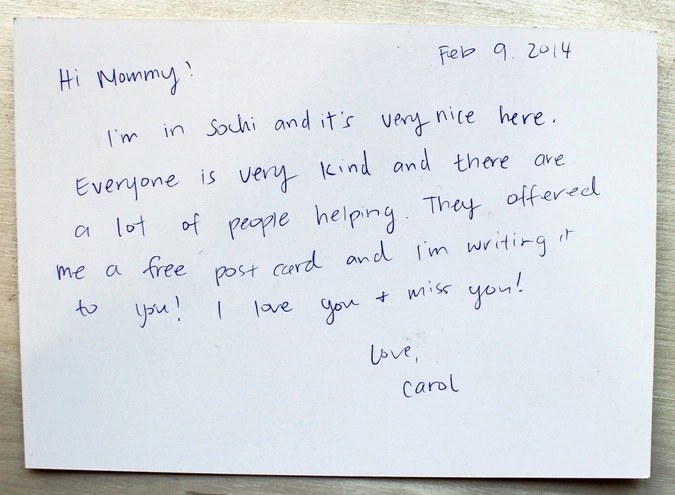 Feb 9. 2014
Hi Mommy!
I'm in Sochi and it's very nice here.
Everyone is very kind and there are
a lot of people helping. They offered
me a free post card and I'm writing it
to you! I love you + miss you!
Love,
Carol